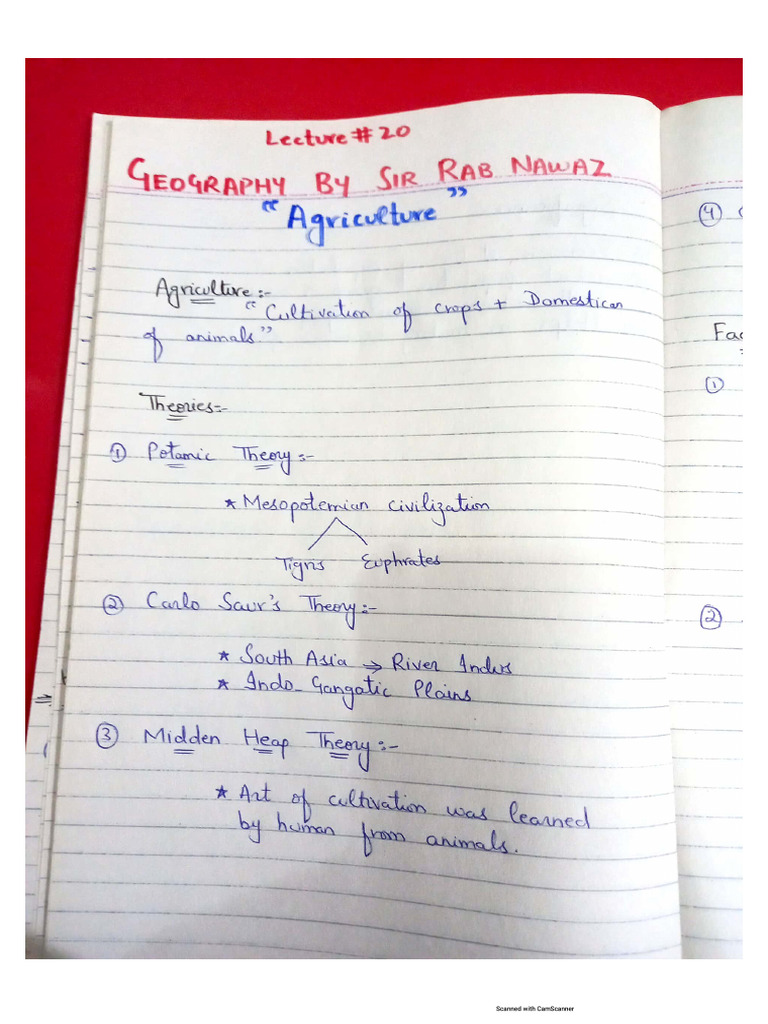 Lecture # 20
GEOGRAPHY BY SIR RAB NAWAZ
"Agriculture"
Agriculture:-
"Cultivation of crops + Domestican
of animals"
Theories:-
① Potamic Theory:-
* Mesopotemian civilization
Tigris Euphrates
② Carlo Saur's Theory:-
* South Asia → River Indus
* Indo-Gangatic Plains
③ Midden Heap Theory:-
* Art of cultivation was learned
by human from animals.
④
Fac
①
②
Scanned with CamScanner